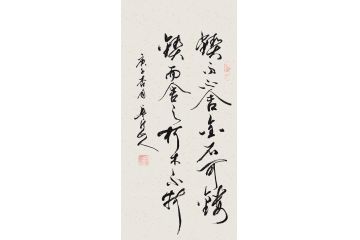 锲不舍金石可镂
锲而舍之朽木不折
庚子杏月